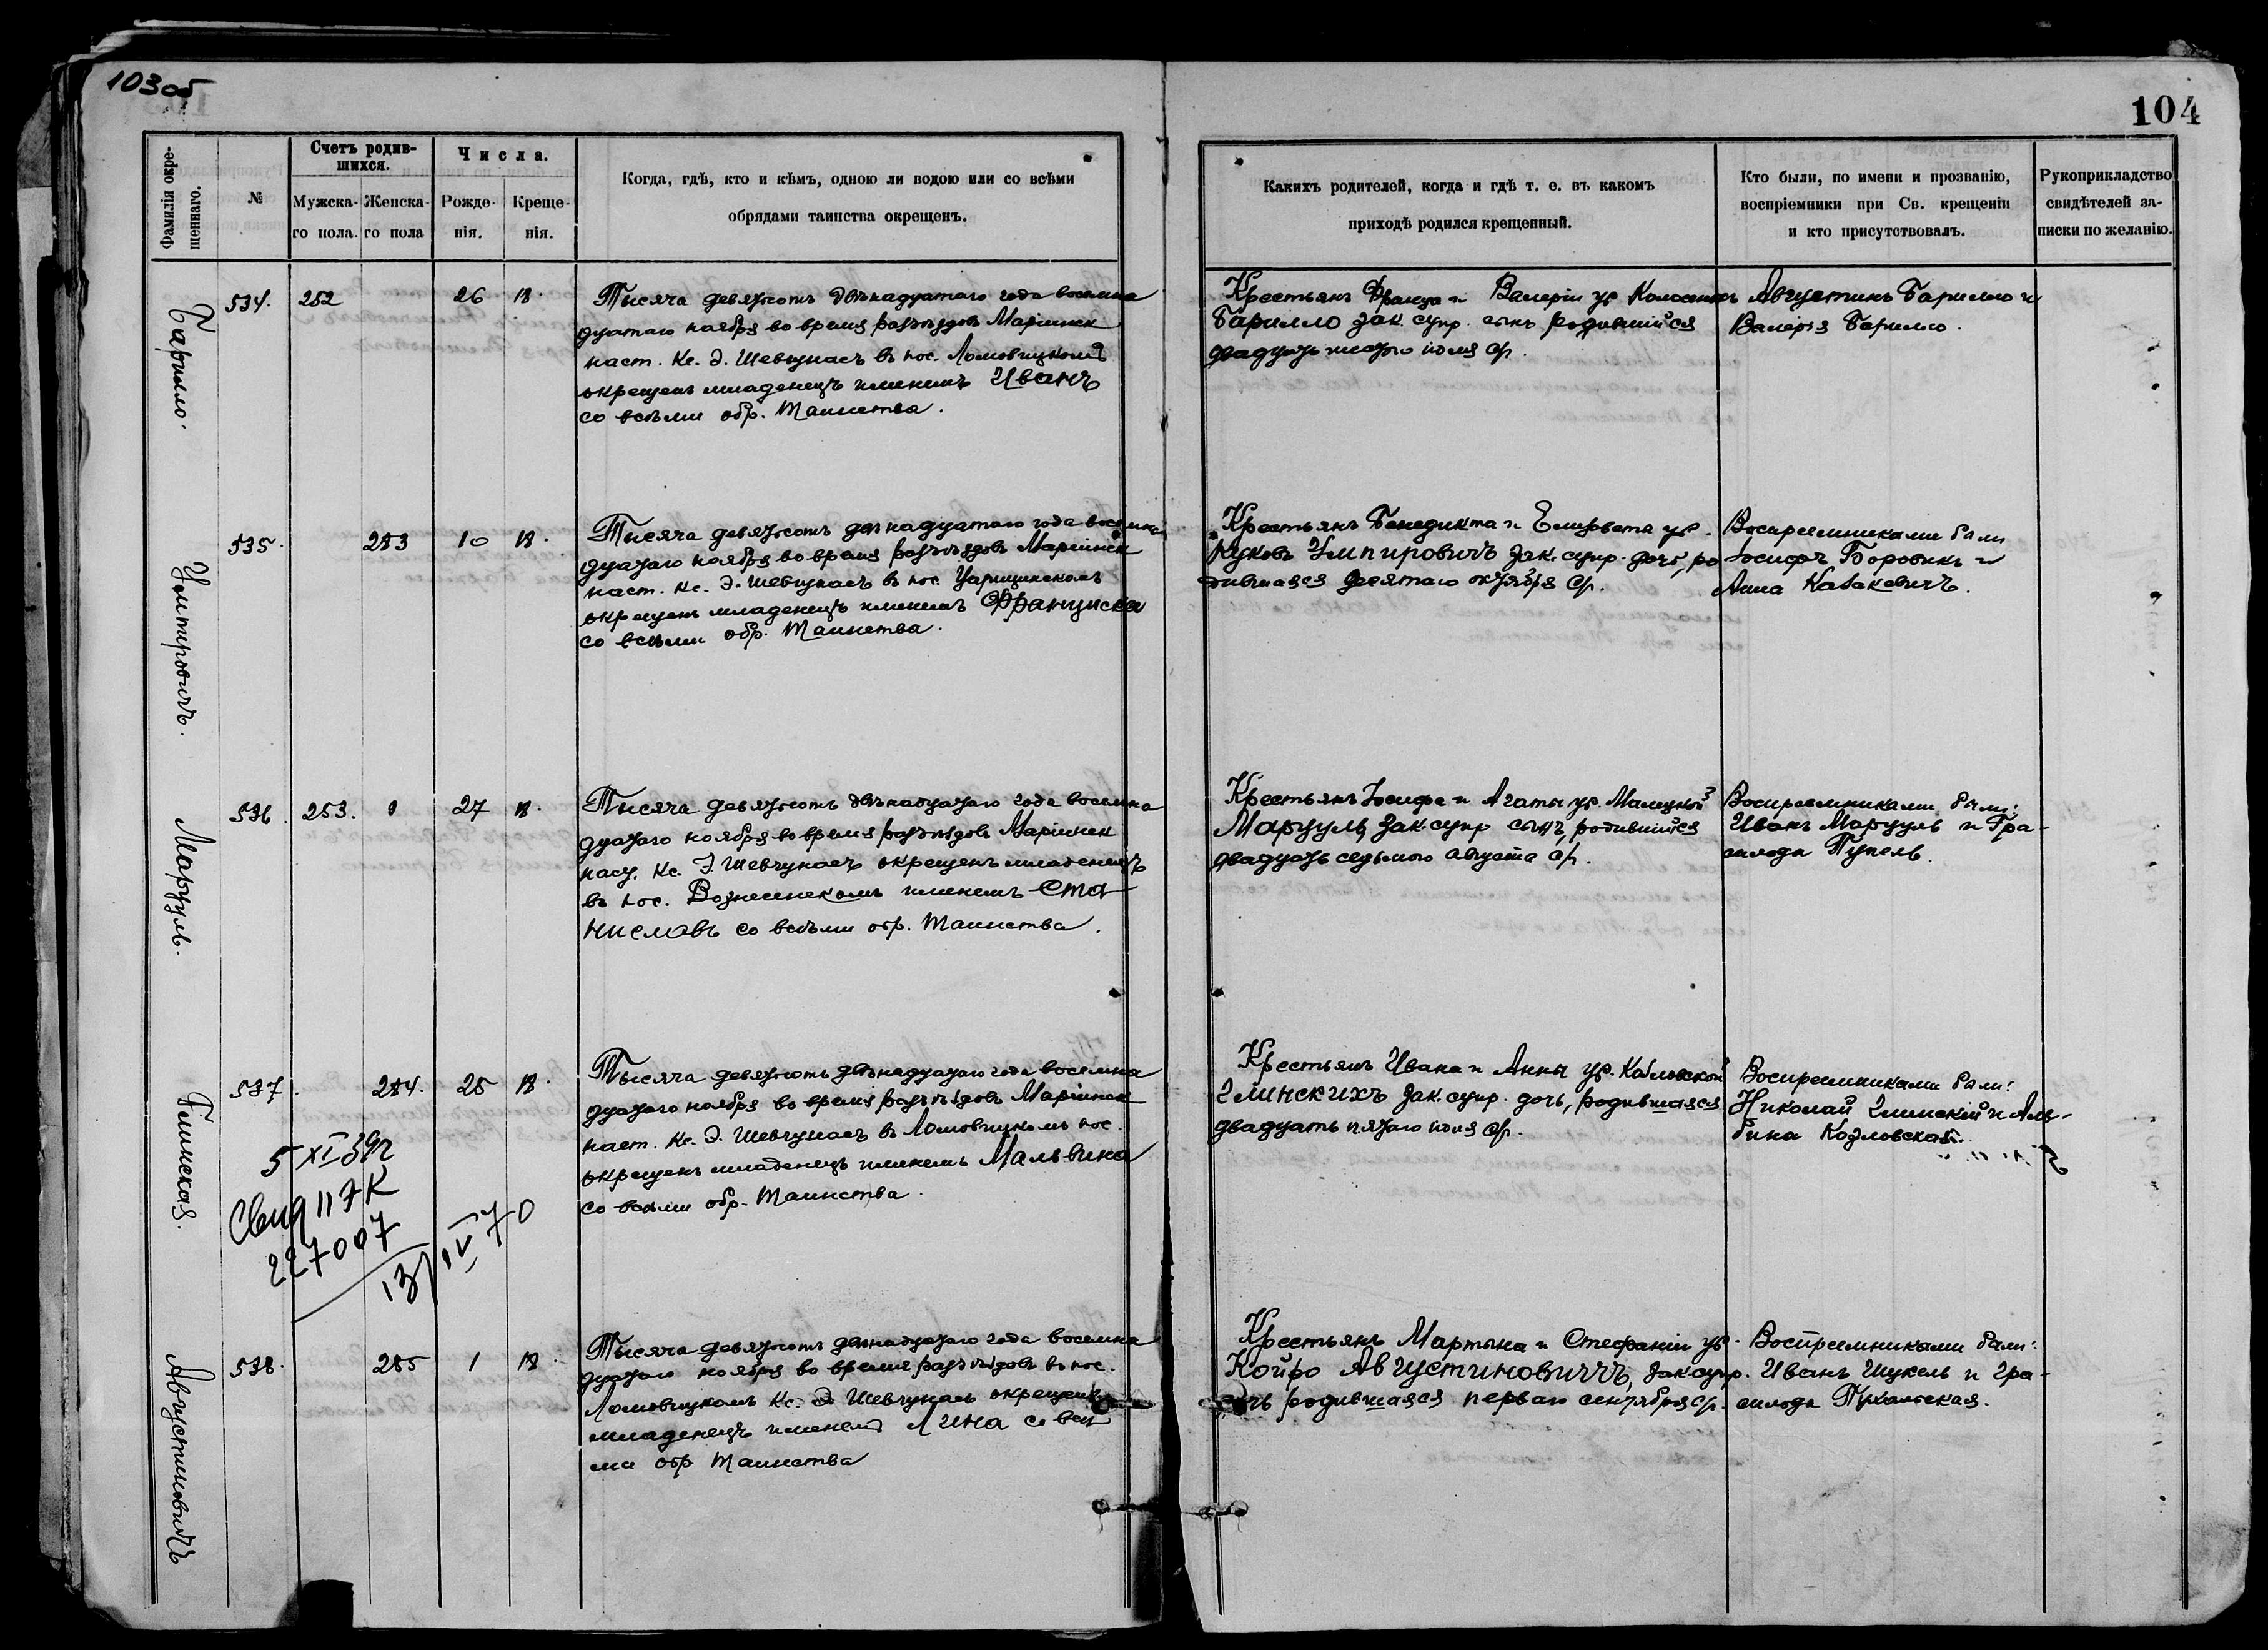 103 об
104
Фамилія окрещеннаго.
№
Счетъ родившихся.
Мужскаго пола.
Женскаго пола
Числа.
Рожденія.
Крещенія.
Когда, гдѣ, кто и кѣмъ, одною ли водою или со всѣми
обрядами таинства окрещенъ.
Какихъ родителей, когда и гдѣ т. е. въ какомъ
приходѣ родился крещенный.
Кто были, по имени и прозванію,
воспріемники при Св. крещеніи
и кто присутствовалъ.
Рукоприкладство
свидѣтелей за-
писки по желанію.
Барилло.
534. 252 26 18.
Тысяча девятсотъ двѣнадцатаго года восемна
дцатаго ноября во время разъѣздовъ Маріинск
наст. Кс. Э. Шевчунасъ въ пос. Ломовицкомъ
окрещенъ младенецъ именемъ Иванъ
со всѣми обр. Таинства.
Крестьянъ Франца и Валеріи ур.
Барилло зак. супр. сынъ родившійся
двадцать шестаго іюля ср.
Августинъ Барилло и
Валерія Барилло.
535. 283 10 18.
Тысяча девятсотъ двѣнадцатаго года восемна
дцатаго ноября во время разъѣздовъ Маріинск
наст. Кс. Э. Шевчунасъ въ пос. Царицинскомъ
окрещенъ младенецъ именемъ Франциска
со всѣми обр. Таинства.
Крестьянъ Бенедикта и ур.
зак. супр. дочь, ро
дившаяся десятаго октября ср.
Воспреемниками были
Іосифъ Боровикъ и
Анна Кабакевичъ.
Марцуль.
536. 253. 27 18.
Тысяча девятсотъ двѣнадцатаго года восемна
дцатаго ноября во время разъѣздовъ Маріинск
наст. Кс. Э. Шевчунасъ окрещенъ младенецъ
въ пос. Вознесенскомъ именемъ Ста
ниславъ со всѣми обр. Таинства.
Крестьянъ Іосифа и Агаты ур. Малецкой
Марцуль зак. супр сынъ, родившійся
двадцать седьмого августа ср.
Воспреемниками были:
Иванъ Марцуль и Гра-
Тупель.
Глинская.
537. 284. 25 18.
Тысяча девятсотъ двѣнадцатаго года восемна
дцатаго ноября во время разъѣздовъ Маріинск
наст. Кс. Э. Шевчунасъ въ Ломовицкомъ пос.
окрещенъ младенецъ именемъ Мальвина
со всѣми обр. Таинства.
Крестьянъ Ивана и Анны ур. Козловской
Глинскихъ зак. супр. дочь, родившаяся
двадцать пятаго іюля ср.
Воспреемниками были:
Николай Глинскій и Аль-
бина Козловская.
5 XI 39г
Свид II ЭК
227007
13/IV 70
Августиновичъ
538. 285 1 18.
Тысяча девятсотъ двѣнадцатаго года восемна
дцатаго ноября во время разъѣздовъ въ пос.
Ломовицкомъ Кс. Э. Шевчунасъ окрещенъ
младенецъ именемъ Лина со всѣ
ми обр Таинства
Крестьянъ Мартына и Стефаніи ур.
Койро Августиновичъ, зак. супр.
дочь родившаяся перваго сентября ср.
Воспреемниками были:
Иванъ Шукель и Гра-
Пухальская.